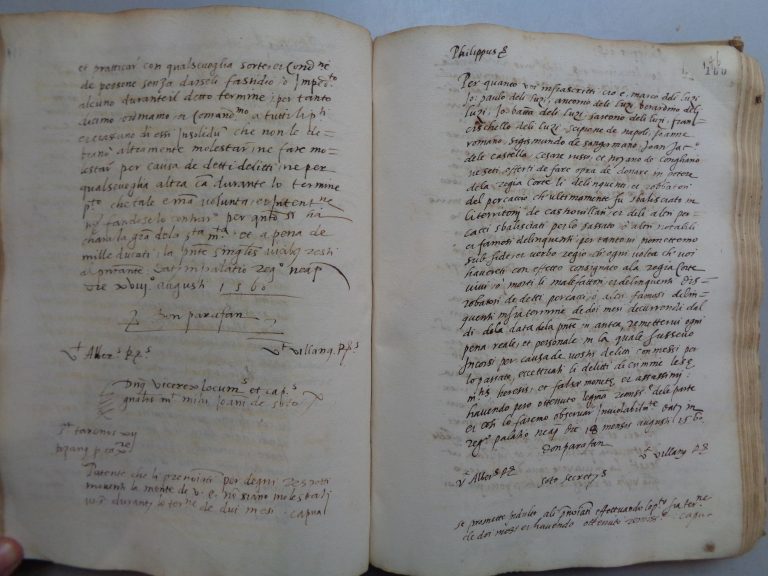 et pratticar con qualsevoglia sorte et Cond.ne
de persone senza darseli fastidio o Imped.to
alcuno durante il detto termine; per tanto
dicimo ordinamo et Comandamo a tutti
et ciascuno di essi Insolidum che non le de-
altramente molestar ne fare mo-
lestar per causa de detti delitti, ne per
qualsevoglia altra ca durante lo termine
p.to che tale e ma volunta et Intent.ne
non fandose lo contrario per q.nto si ha
chara la gra de la s.ta m.ta et a pena de
mille ducati. la p.nte
al p.ntante. Dat. in palatio reg.o neap
die xviii.o augusti 1560
Don parafan
V.t Alber.s R.s V.t Villan.s R.s
Dns Vicerex locum.s et cap.s
g.nalis m.t mihi Joanni de soto
tarenos xii
Patente che la per degni respetti
moventi la mente de v. e. non siano molestati
durante lo ter.ne de dui mesi. capual
Philippus &
160
Per quanto voi infrascritti cio e marco deli luzi
Jo: paulo deli luzi, antonio deli luzi berardino deli
luzi, Jo: batta deli luzi, iacono deli luzi, fran-
cischello deli luzi scipione de napoli, Joanne
romano, sigismundo de sangermano Joan Jac.o
dele castella, cesare russo, et de Corigliano
ne seti offerti de fare opra de donare in potere
dela regia Corte li delinquenti et robbatori
del percaccio ch'ultimamente fu sbalisciato in
li territorii de castrovillari et deli altri per-
cacci sbalisciati per lo passato o altri notabili
et famosi delinquenti per tanto vi promettemo
sub fide et verbo regio di ogni volta che voi
haverete con effetto consignato ala regia Corte
vivi o morti li malfattori et delinquenti dis-
robatori de detti percacci o altri famosi delin-
quenti infra termine de dui mesi decurrendi dal
di dela data dela p.nte in antea, remettervi ogni
pena reale et personale in la quale fussevo
Incorsi per causa de vostri delitti commessi per
lo passato, eccettuati li delitti de crimine lese
m.tis heresis, et false monete et assassinii
havendo pero ottenuto legitima remiss.e dele parte
et cosi lo faremo observar Inviolabilm.te Dat. in
reg.o palatio neap die 18 mensis augusti 1560.
Don parafan
V.t Alber.s R.s V.t Villan.s R.s
soto secret.s
se promette indulto ali p.nominati effettuando lo p.to fra ter.ne
de dui mesi et havendo ottenuto remiss.e capual